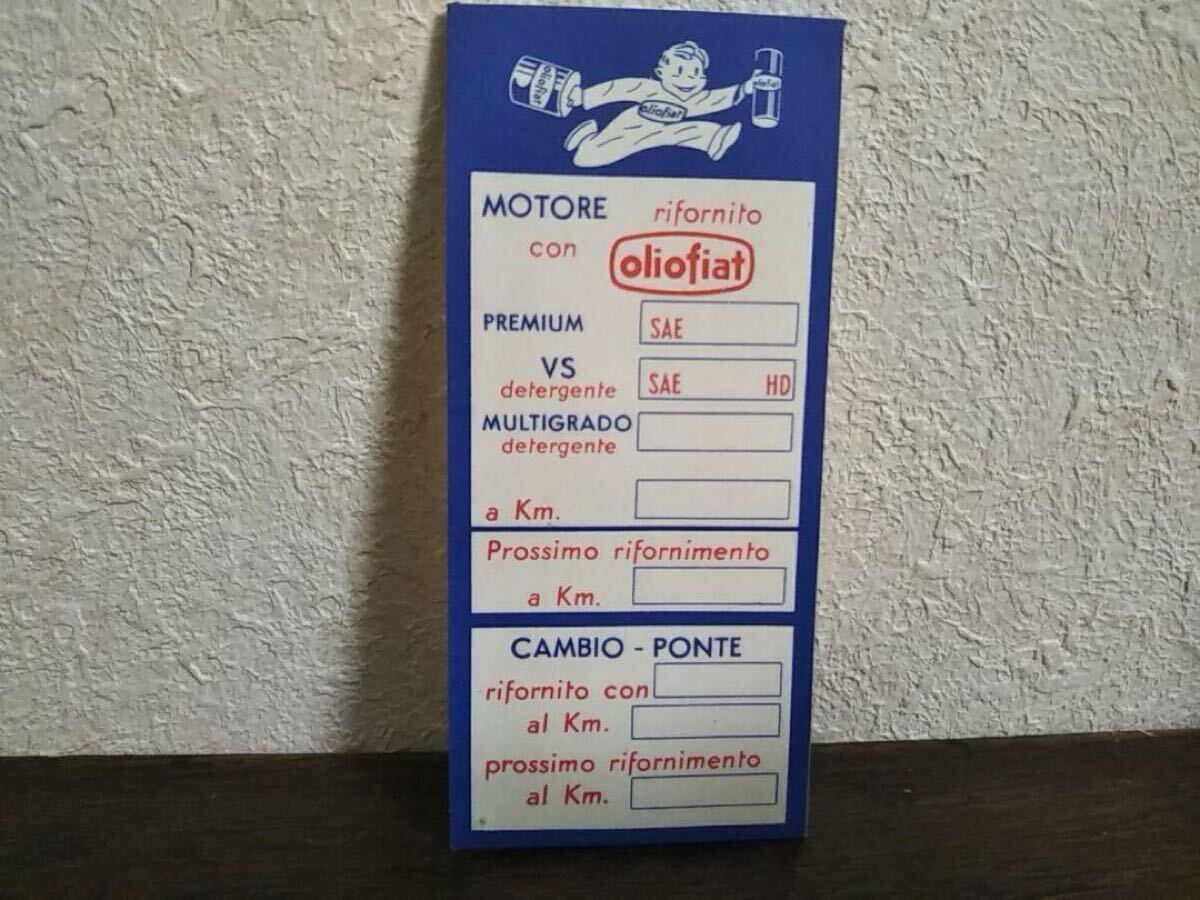 oliofiat
oliofiat
oliofiat
MOTORE rifornito
con oliofiat
PREMIUM SAE
VS
detergente SAE HD
MULTIGRADO
detergente
a Km.
Prossimo rifornimento
a Km.
CAMBIO - PONTE
rifornito con
al Km.
prossimo rifornimento
al Km.